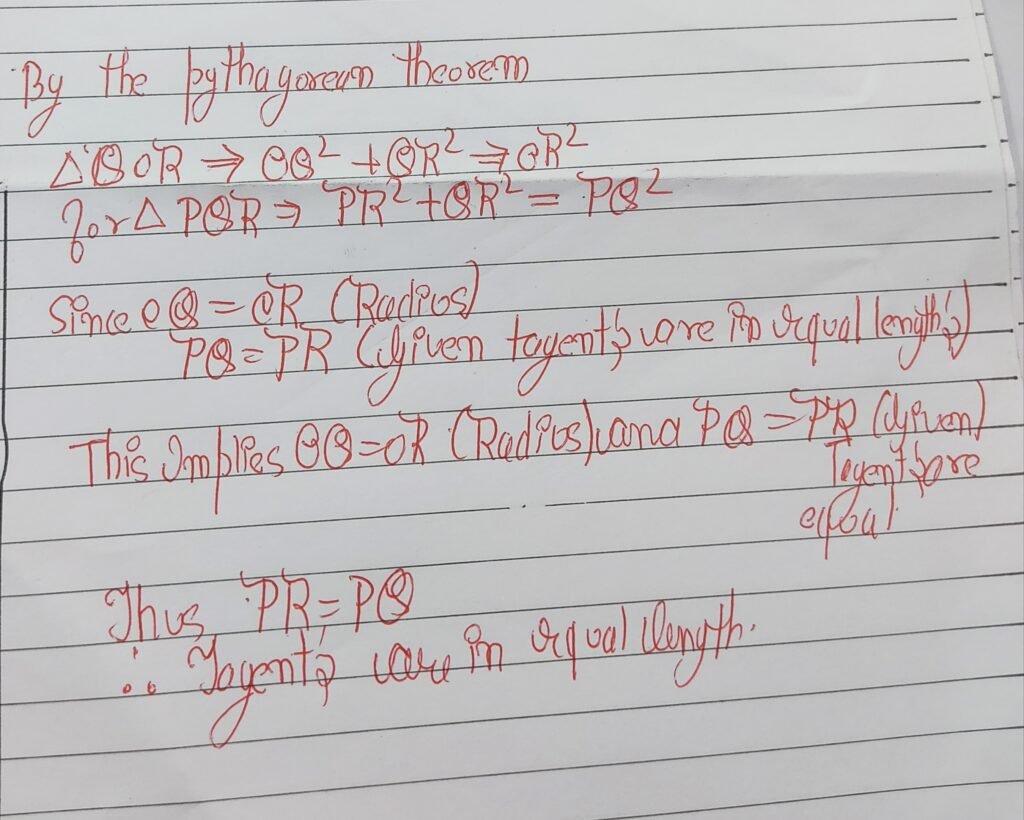 By the pythagorean theorem
△QOR ⇒ OQ² + QR² ⇒ OR²
for △ PQR ⇒ PR² + QR² = PQ²
Since OQ = OR (Radius)
PQ = PR (Given tagent's are in equal length's)
This Implies OQ = OR (Radius) and PQ = PR (Given)
Tagent's are
equal.
Thus, PR = PQ
∴ Tagent's are in equal length.